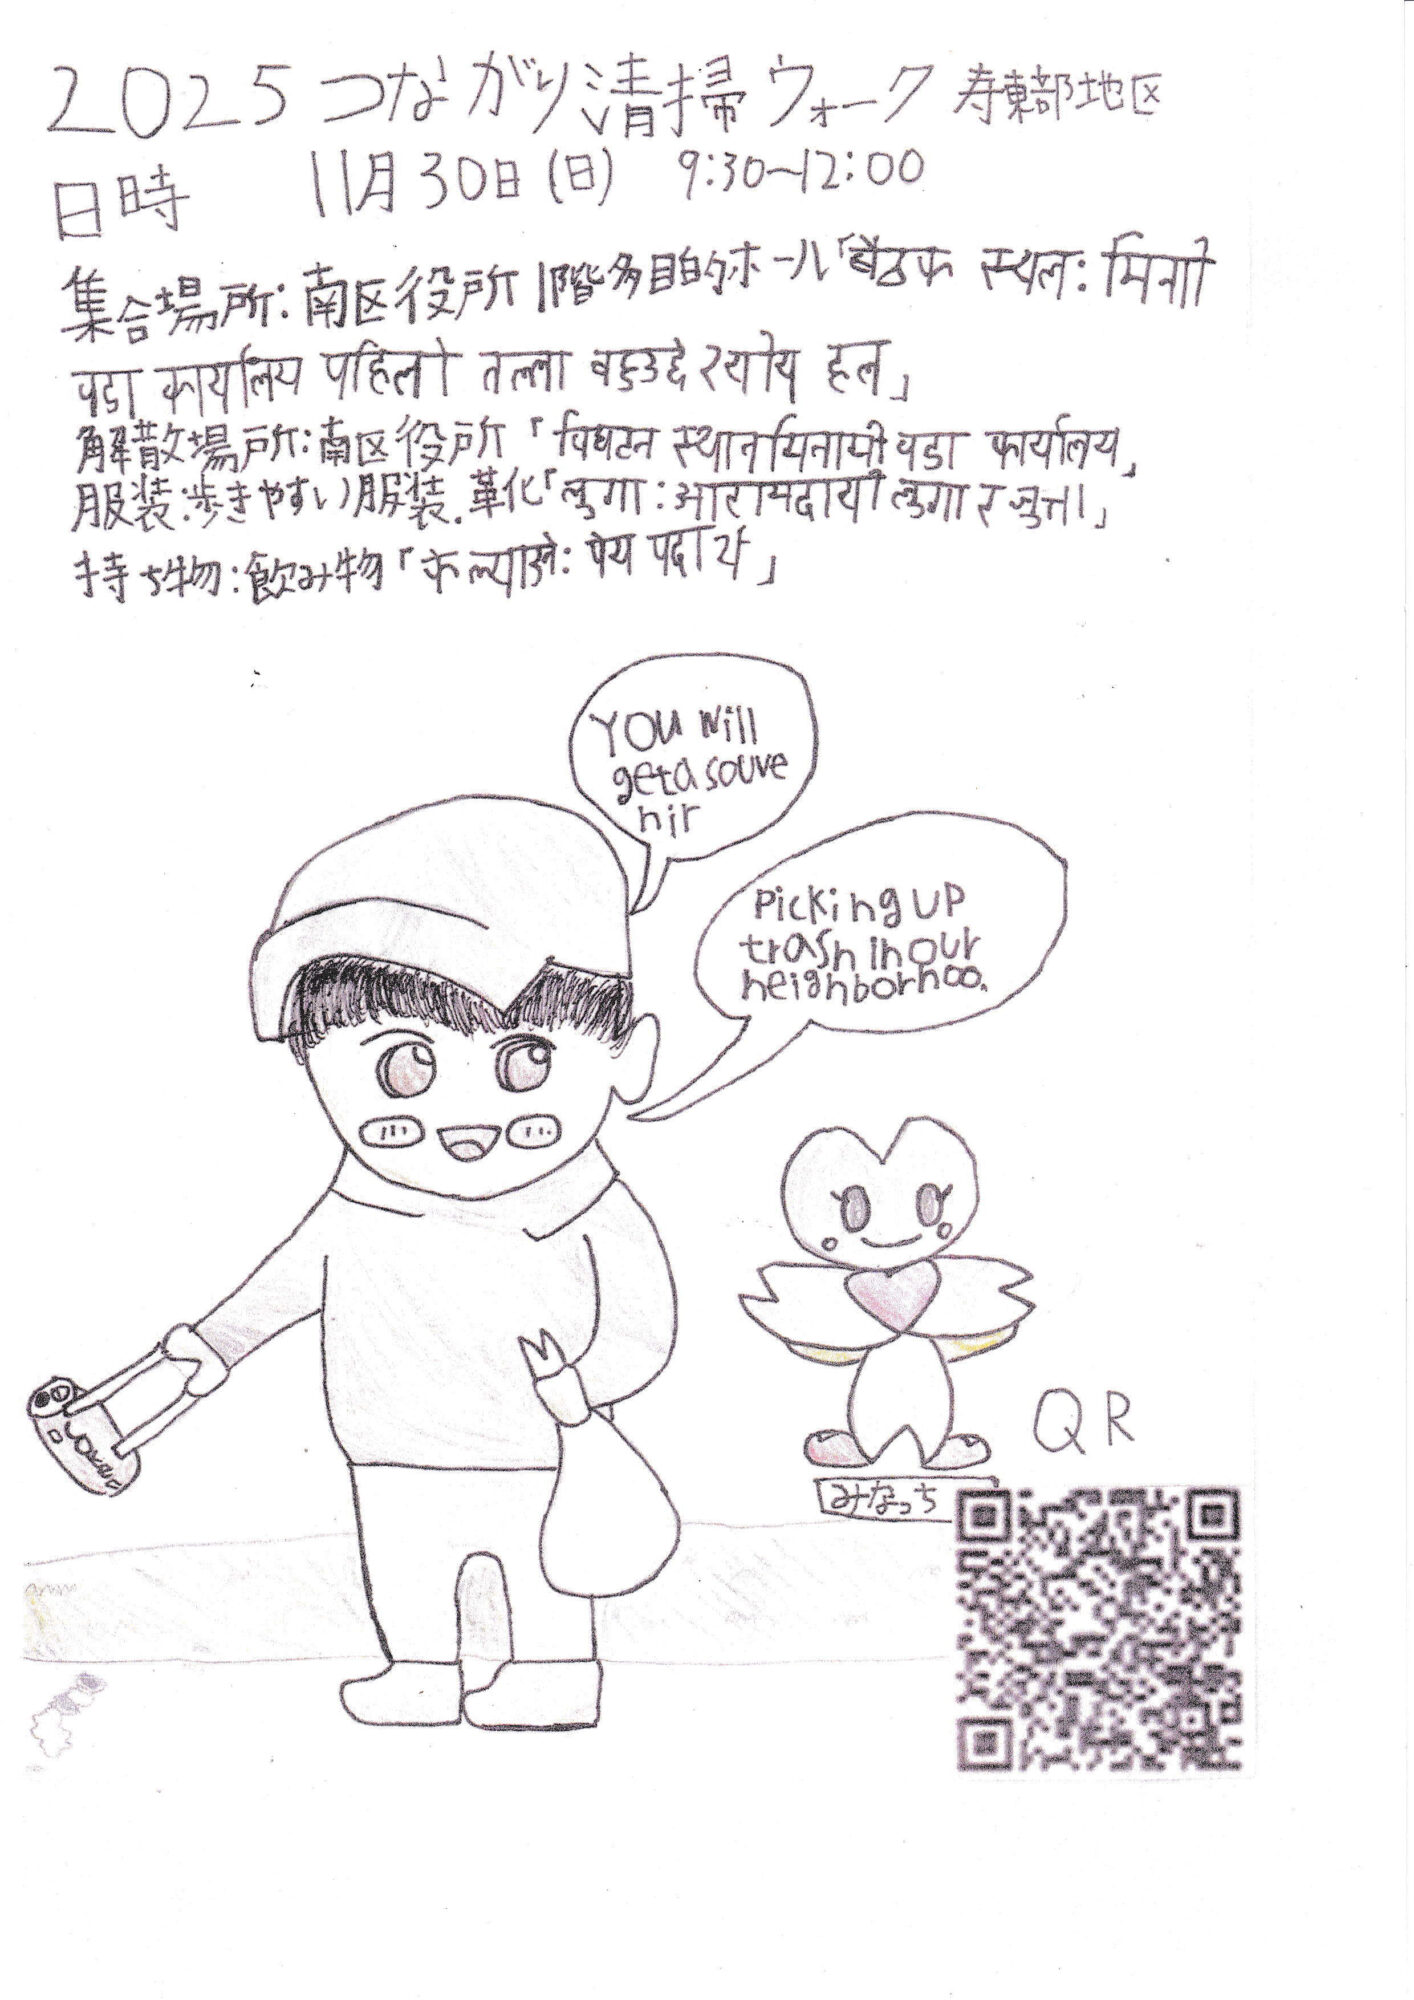 2025つながり清掃ウォーク 寿東部地区
日時 11月30日(日) 9:30~12:00
集合場所:南区役所1階多目的ホール「बैठक स्थल: मिनामी
वडा कार्यालय पहिलो तल्ला बहुउद्देश्यीय हल」
解散場所:南区役所「विघटन स्थानमिनामी वडा कार्यालय」
服装:歩きやすい服装.革化「लुगा: आरामदायी लुगा र जुत्ता」
持ち物:飲み物「के ल्याउने: पेय पदार्थ」
YOU will
get a souve
nir
Picking up
trash in our
neighborhoo.
みなっち
QR